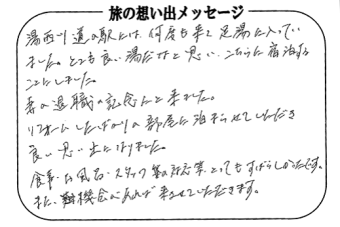 旅の想い出メッセージ
湯西川道の駅には、何度も来て足湯に入ってい
ました。とても良い湯だなと思い、こちらに宿泊する
ことにしました。
妻の退職の記念にと来ました。
リフォームしたばかりの部屋に泊まらせていただき
良い思い出になりました。
食事・お風呂・スタッフ等の対応等、とってもすばらしかったです。
また、機会があれば来させていただきます。